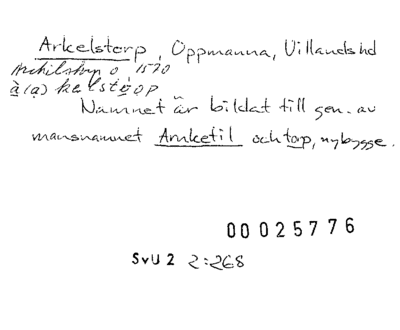 Arkelstorp, Oppmanna, Villands hd
Arkilstorp o, 1570
à(a) kelstorp
Namnet är bildat till gen. av
mansnamnet Arnketil och torp, nybygge.
00025776
SvU 2 2:268